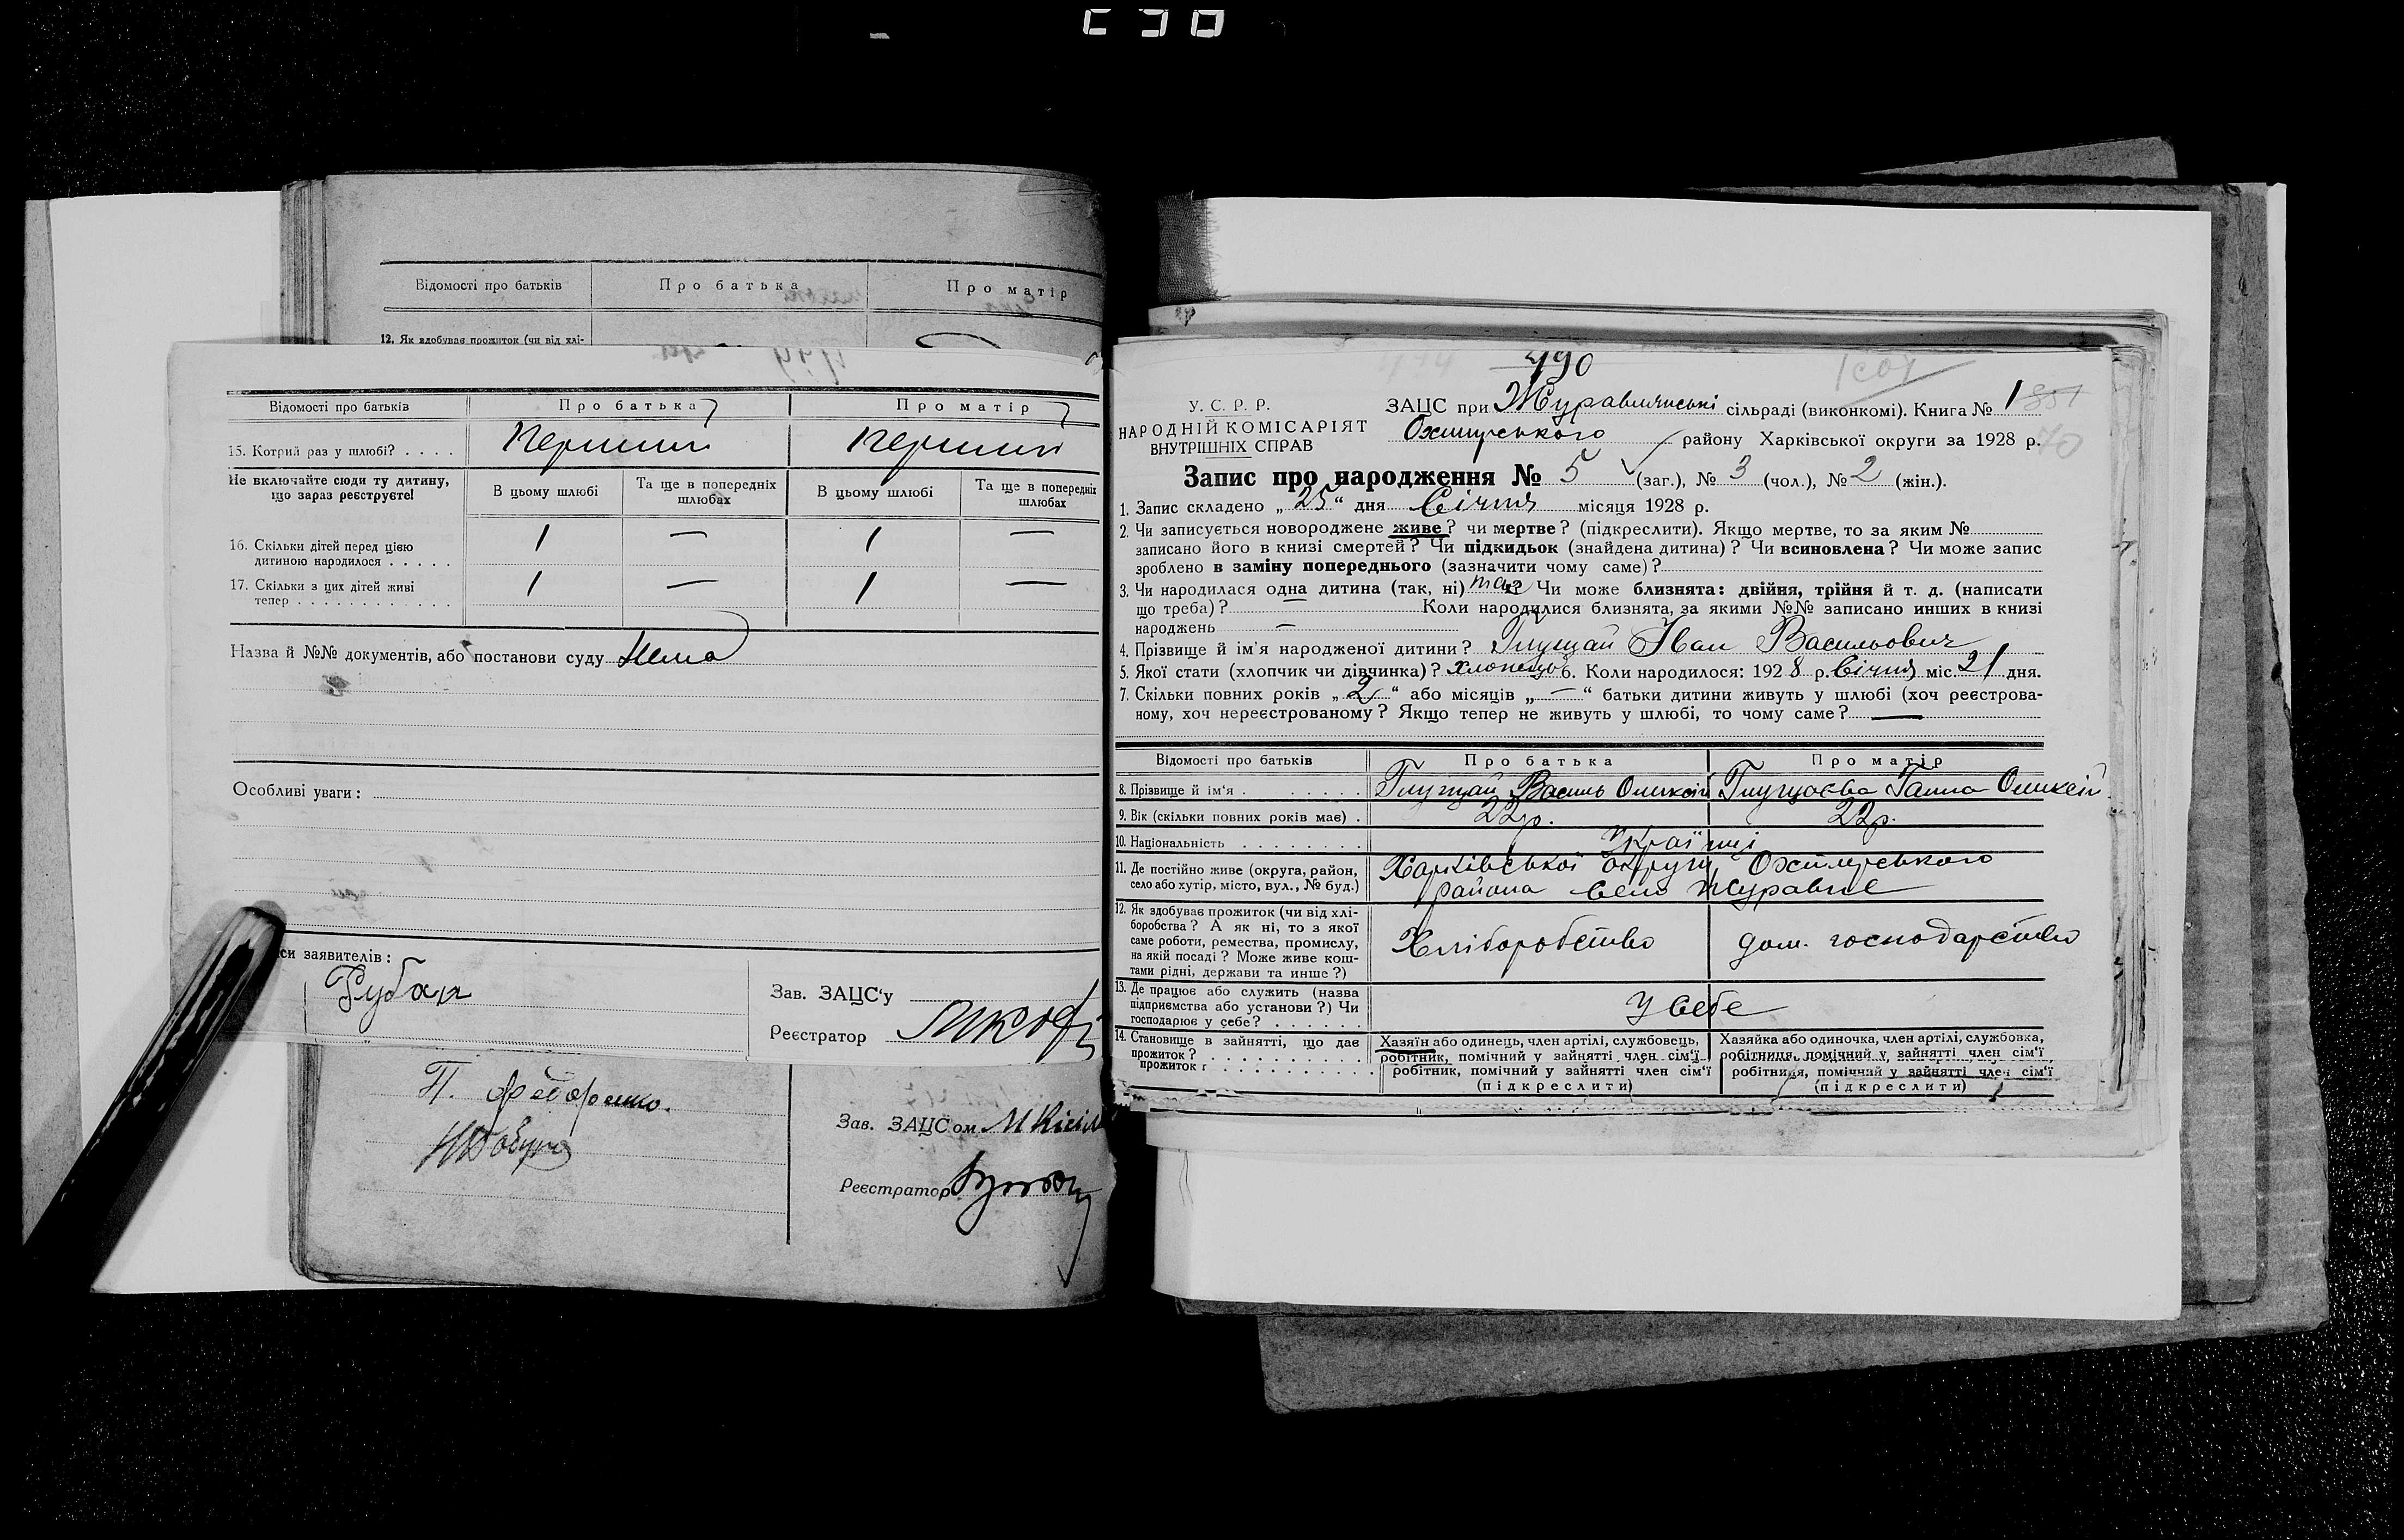 Відомості про батьків
Про батька
Про матір
12. Як здобуває прожиток (чи від хлі-
Відомості про батьків
Про батька
Про матір
15. Котрий раз у шлюбі? . . . .
Не включайте сюди ту дитину,
що зараз реєструєте!
В цьому шлюбі
Та ще в попередніх
шлюбах
В цьому шлюбі
Та ще в попередніх
шлюбах
16. Скільки дітей перед цією
дитиною народилося . . . . .
1 — 1 —
17. Скільки з цих дітей живі
тепер . . . . . . . . . . . .
1 — 1 —
Назва й №№ документів, або постанови суду Нема
Особливі уваги:
си заявителів:
Рубан
Зав. ЗАЦС'у
Реєстратор
П. Федоренко.
Зав. ЗАЦСом
Реєстратор
490
У. С. Р. Р.
НАРОДНІЙ КОМІСАРІЯТ
ВНУТРІШНІХ СПРАВ
ЗАЦС при Журавлянські сільраді (виконкомі). Книга № 1
району Харківської округи за 1928 р.
Запис про народження № 5 (заг.), № 3 (чол.), № 2 (жін.).
1. Запис складено „ 25 “ дня Січня місяця 1928 р.
2. Чи записується новороджене живе? чи мертве? (підкреслити). Якщо мертве, то за яким №
записано його в книзі смертей? Чи підкидьок (знайдена дитина)? Чи всиновлена? Чи може запис
зроблено в заміну попереднього (зазначити чому саме)?
3. Чи народилася одна дитина (так, ні) так Чи може близнята: двійня, трійня й т. д. (написати
що треба)? — Коли народилися близнята, за якими №№ записано инших в книзі
народжень —
4. Прізвище й ім'я народженої дитини? Глущай Іван Васильович
5. Якої стати (хлопчик чи дівчинка)? хлопець 6. Коли народилося: 1928 р. Січня міс. 21 дня.
7. Скільки повних років „ 2 “ або місяців „ — “ батьки дитини живуть у шлюбі (хоч реєстрова-
ному, хоч нереєстрованому? Якщо тепер не живуть у шлюбі, то чому саме? —
Відомості про батьків
Про батька
Про матір
8. Прізвище й ім'я . . . . . . .
Глущай Василь Оликсій
Глущаєва Ганна Оликсій
9. Вік (скільки повних років має) .
22р.
22р.
10. Національність . . . . . . . .
Українці
11. Де постійно живе (округа, район,
село або хутір, місто, вул., № буд.)
Харківської округи
района село Журавне
12. Як здобуває прожиток (чи від хлі-
боробства? А як ні, то з якої
саме роботи, ремества, промислу,
на якій посаді? Може живе кош-
тами рідні, держави та инше?)
Хліборобство
дом. господарство
13. Де працює або служить (назва
підприємства або установи?) Чи
господарює у себе? . . . . . .
У себе
14. Становище в зайнятті, що дає
прожиток? . . . . . . . . . .
Хазяїн або одинець, член артілі, службовець,
робітник, помічний у зайнятті член сім'ї
Хазяйка або одиночка, член артілі, службовка,
робітниця, помічний у зайнятті член сім'ї
робітник, помічний у зайнятті член сім'ї
(підкреслити)
робітниця, помічний у зайнятті член сім'ї
(підкреслити)